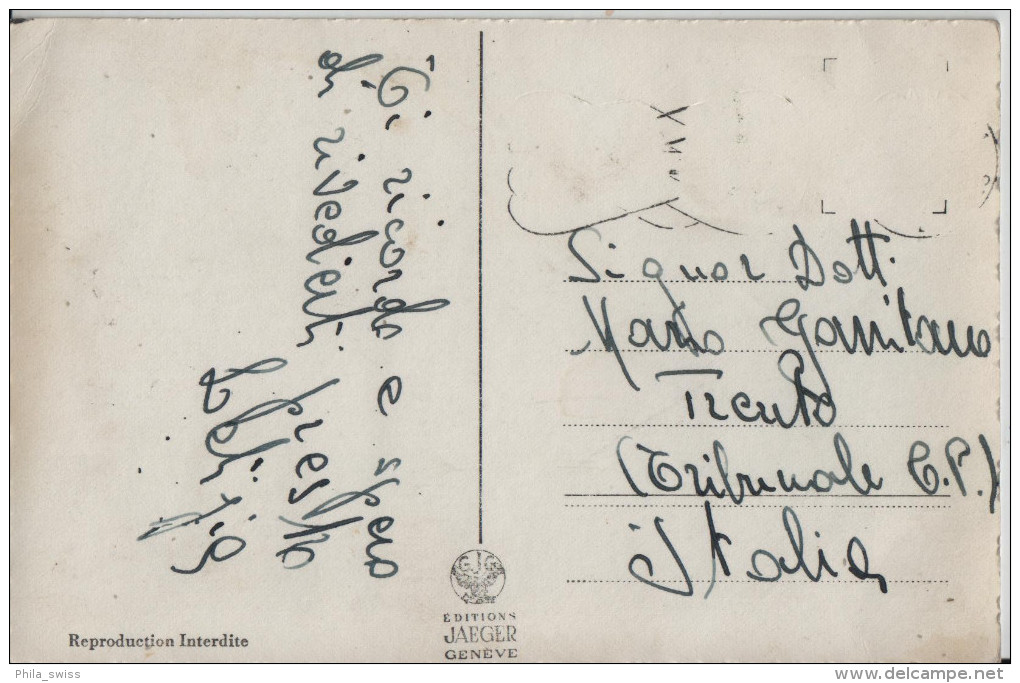 Ti ricordo e spero
di rivederti presto
Signor Dott.
Mario Gamitano
Trento
(Tribunale C.P.)
Italia
GJG
ÉDITIONS
JAEGER
GENÈVE
Reproduction Interdite
Phila_swiss
www.delcampe.net